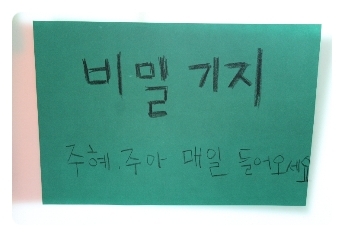 비밀 기지
주혜.주아 매일 들어오세요